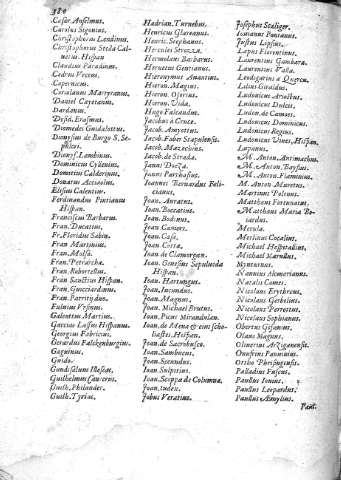 380
Cæsar Anselmus.
Carolus Sigonius.
Christophorus Landinus.
Christophorus Stela Calmetius. Hispan
Claudius Paradinus.
Cedrus Vecens.
Copernicus.
Coriolanus Martyranus.
Daniel Cayetanus.
Dardanus.
Desid. Erasmus.
Diomedes Guidalottus.
Dionysius de Burgo S. Sepulcri.
Dionys. Lambinus.
Dominicus Cylenius.
Domitius Calderinus.
Donatus Acciolus.
Elisius Calentius.
Ferdinandus Puntianus
Hispan.
Franciscus Barbarus.
Fran. Ducattus.
Fr. Floridus Sabin.
Fran Marinus.
Fran. Molsa.
Fran. Petrarcha.
Fran. Robortellus.
Fran Sanctius Hispan.
Fran. Guicciardinus.
Fran. Patritius.
Fulvius Vrsinus.
Galeottus Martius.
Garcias Lassus Hispanus.
Georgius Fabricius.
Gerardus Falckenburgius.
Gaguinus.
Guido.
Gundisalvus Illescas.
Guilhelmus Canterus.
Guilh. Philander.
Guilh. Tyrius.
Hadrian. Turnebus.
Henricus Glareanus.
Henric. Stephanus.
Hercules Strozza.
Hermolaus Barbarus.
Hermetus Gentianus.
Hieronymus Amantius.
Hieron. Magius.
Hieron. Osorius.
Hieron. Vida.
Hugo Falcandus.
Jacobus à Cruce.
Jacob. Amyottus.
Jacob. Faber Stapulensis.
Jacob. Mazochius.
Jacob. de Strada.
Janus Douza.
Janus Parrhasius.
Joannes Bernardus Felicianus.
Joan. Auratus.
Joan. Boccatius.
Joan. Bodinus.
Joan Camers.
Joan. Casa.
Joan. Cotta.
Joan de Clamorgan.
Joan. Genesius Sepulveda
Hispan.
Joan. Hartungus.
Joan. Iucundus.
Joan. Magnus.
Joan. Michael Brutus.
Joan. Picus Mirandulan.
Joan. de Mena & eius scholiastes. Hispan.
Joan. de Sacrobusco.
Joan. Sambucus.
Joan. Secundus.
Joan. Sulpitius.
Joan. Scoppa de Columna.
Joan. Iudex.
Jobus Veratius.
Josephus Scaliger.
Ioannus Pontanus.
Justus Lipsius.
Lapus Florentinus.
Laurentius Gambara.
Laurentius Valla.
Leodegarius à Quercu.
Lilius Giraldus.
Ludovicus Ariostus.
Ludovicus Dulcis.
Ludov. de Camoes.
Ludovicus Dominicus.
Ludovicus Regius.
Ludovicus Vives, Hispan.
Lupanus.
M. Anton. Antimachus.
M. Anton. Baysus.
M. Anton. Flaminius.
M. Anton Muretus.
Martinus Polonus.
Matthæus Fortunatus.
Matthæus Maria Boiardus.
Merula.
Merlinus Cocalius.
Michael Hospitalius.
Michael Marullus.
Mynturnus.
Nannius Alcmarianus.
Natalis Comes.
Nicolaus Erythræus.
Nicolaus Gerbelius.
Nicolaus Perrottus.
Nicolaus Sophianus.
Obertus Gifanius.
Olaus Magnus.
Oliverius Arzignanensis.
Onufrius Panvinius.
Ortho Phrisingensis.
Palladius Fuscus.
Paulus Iovius.
Paulus Leopardus.
Paulus Æmylius.
Paul.